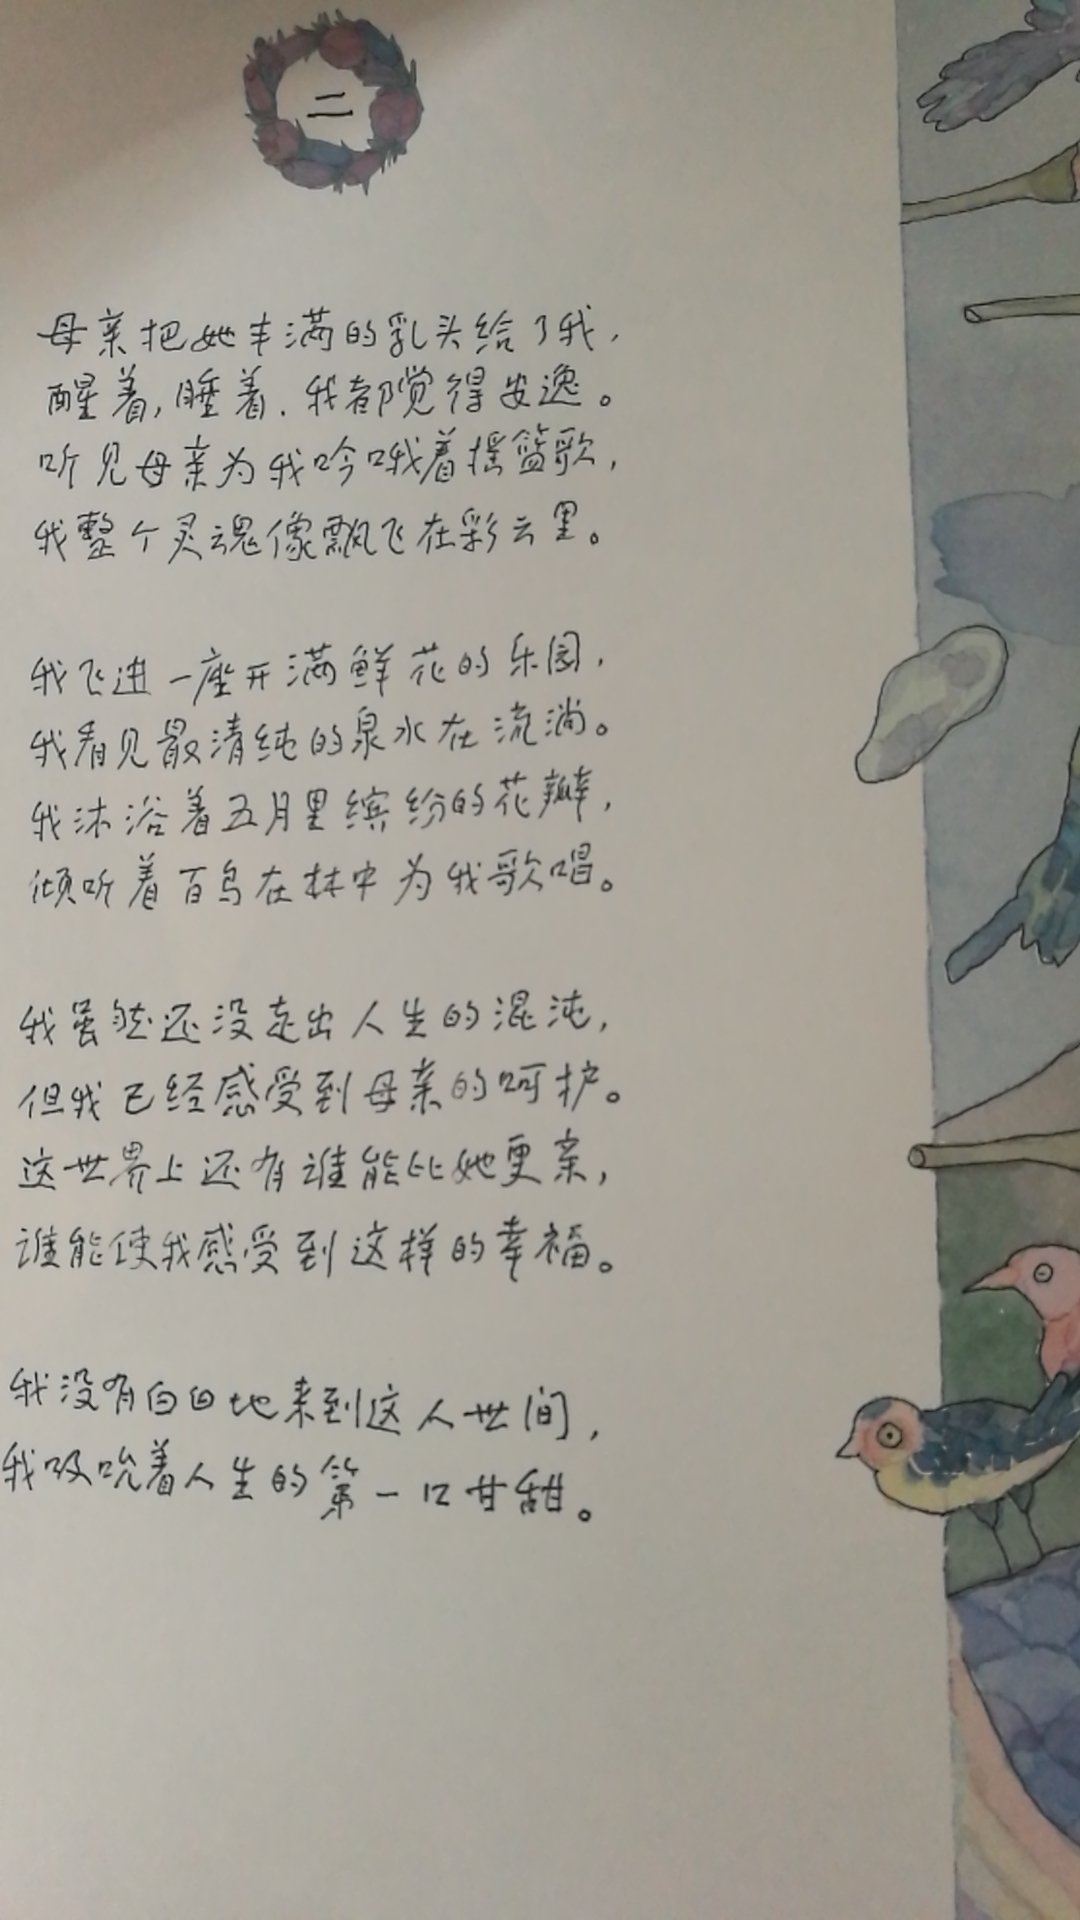 二
母亲把她丰满的乳头给了我，
醒着，睡着，我都觉得安逸。
听见母亲为我吟哦着摇篮歌，
我整个灵魂像飘飞在彩云里。
我飞进一座开满鲜花的乐园，
我看见最清纯的泉水在流淌。
我沐浴着五月里缤纷的花瓣，
倾听着百鸟在林中为我歌唱。
我虽然还没走出人生的混沌，
但我已经感受到母亲的呵护。
这世界上还有谁能比她更亲，
谁能使我感受到这样的幸福。
我没有白白地来到这人世间，
我吸吮着人生的第一口甘甜。